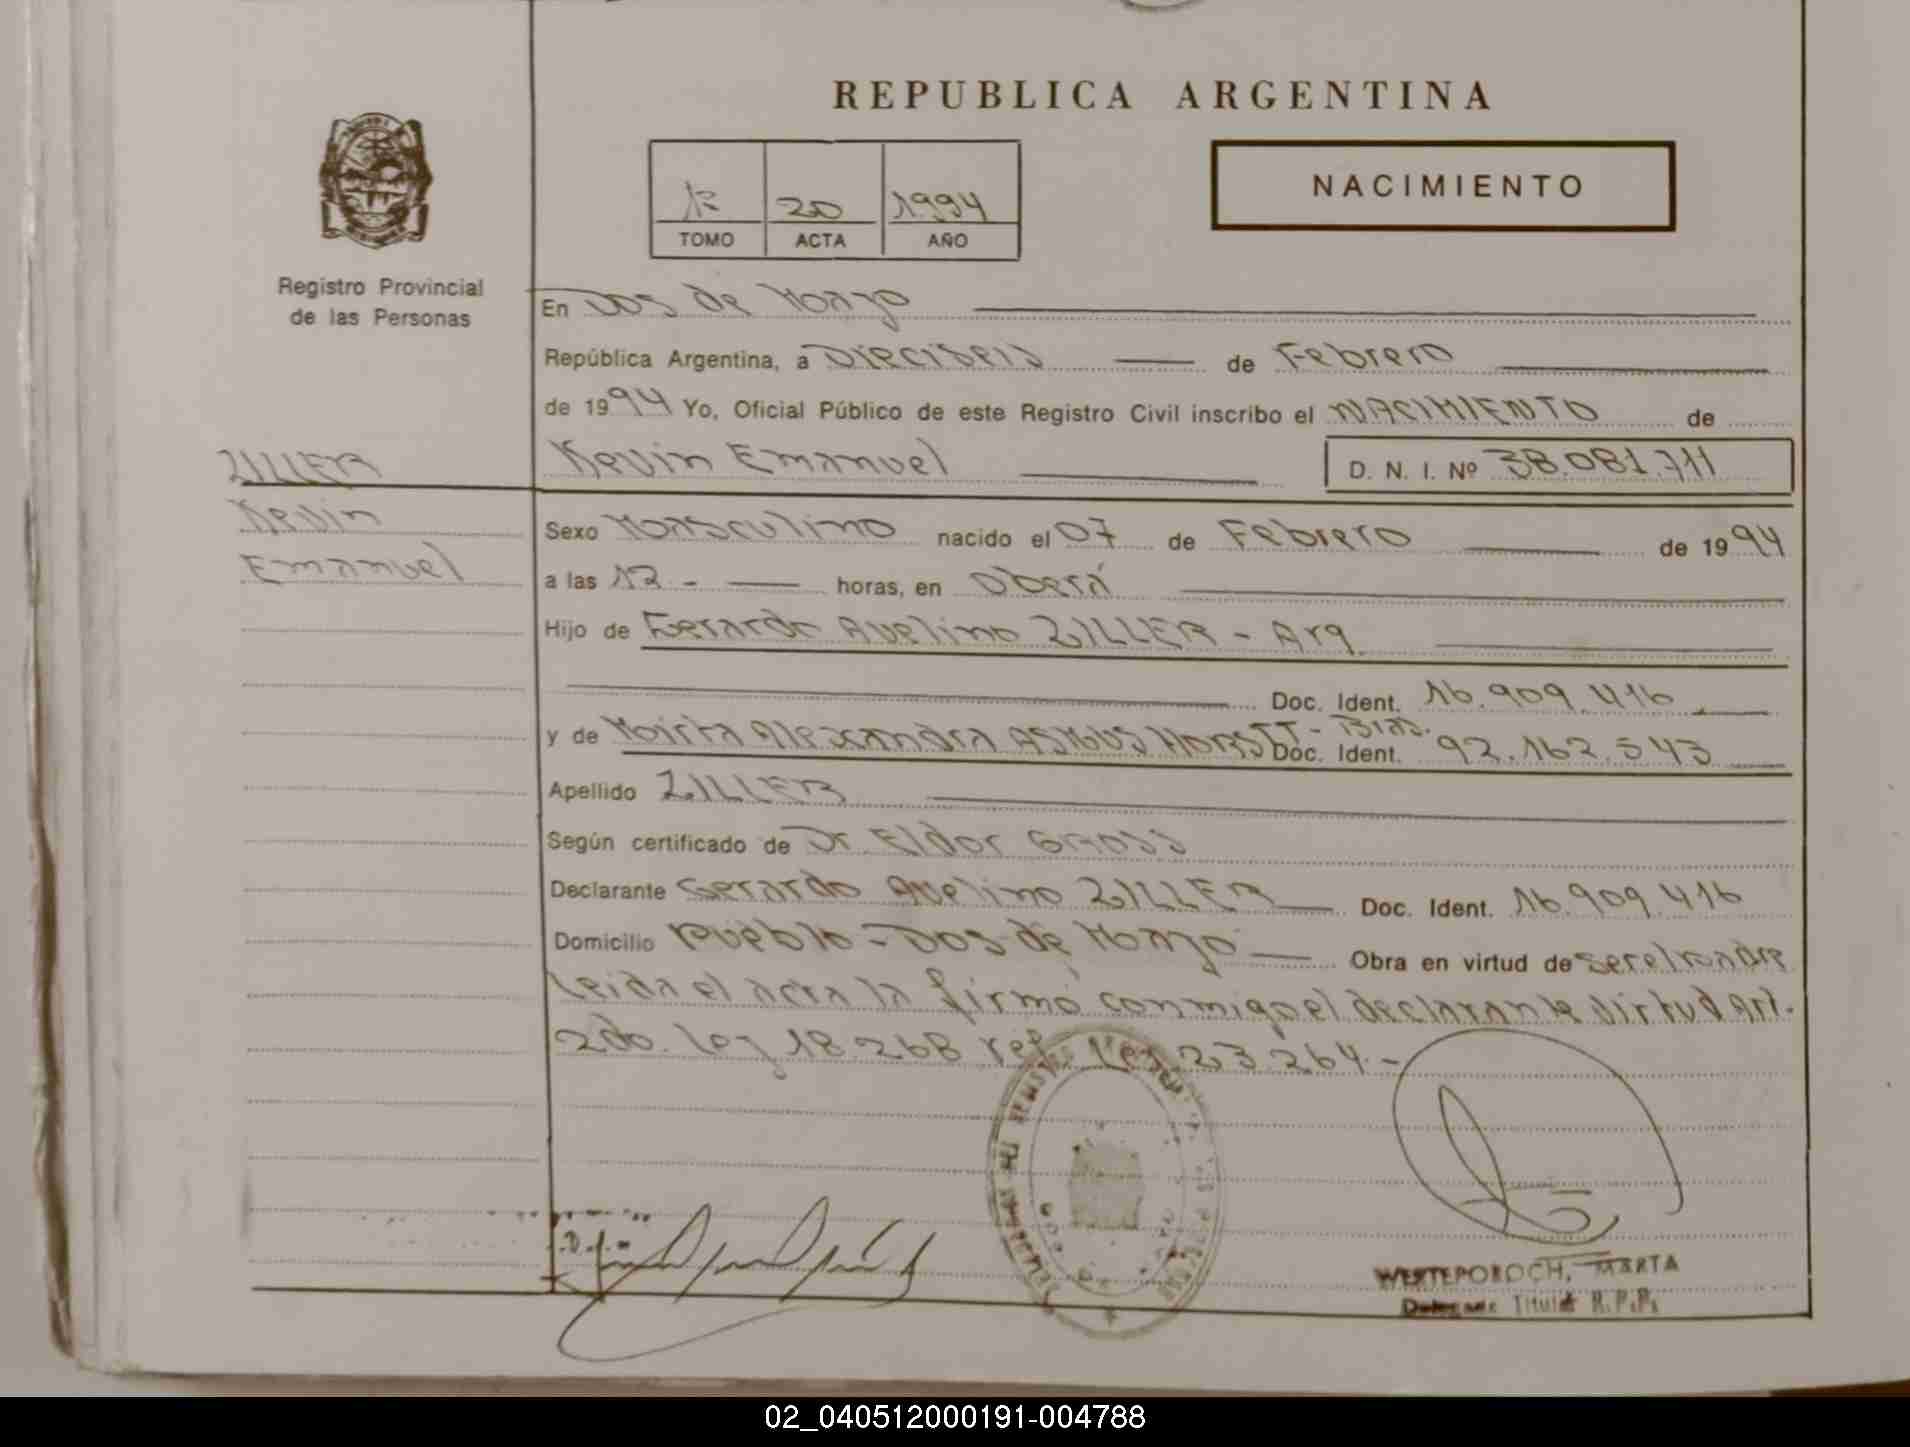 REPUBLICA ARGENTINA
NACIMIENTO
20 1994
TOMO ACTA AÑO
Registro Provincial
de las Personas
En Dos de Mayo
República Argentina, a Dieciseis de Febrero
de 1994 Yo, Oficial Público de este Registro Civil inscribo el NACIMIENTO de
Kevin Emanuel D. N. I. Nº 38.081.711
ZILLER
Kevin
Emanuel
Sexo Masculino nacido el 07 de Febrero de 1994
a las 12 - horas, en Oberá
Hijo de Gerardo Avelino ZILLER - Arg.
Doc. Ident. 16.909.416
y de Alexandra - Bras.
Doc. Ident. 92.162.543
Apellido ZILLER
Según certificado de Dr. Eldor Gross
Declarante Gerardo Avelino ZILLER Doc. Ident. 16.909.416
Domicilio Pueblo - Dos de Mayo Obra en virtud de ser el padre
Leida el acta la firmó conmigo el declarante virtud Art.
2do. Ley 18.268 ref. Ley 23.264.-
WESTEPOROCH, MARTA
Titular R.P.P.
02_040512000191-004788